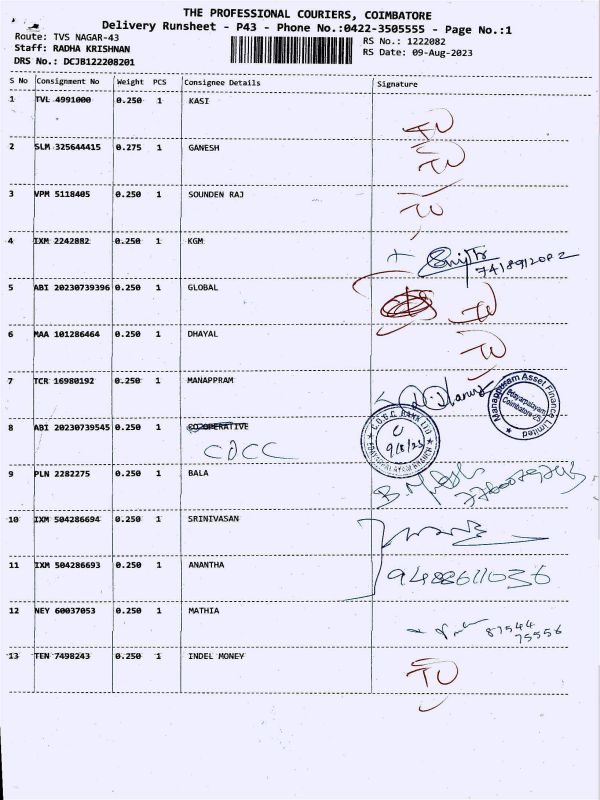 THE PROFESSIONAL COURIERS, COIMBATORE
Delivery Runsheet - P43 - Phone No.:0422-3505555 - Page No.:1
Route: TVS NAGAR-43
Staff: RADHA KRISHNAN
DRS No.: DCJB122208201
RS No.: 1222082
RS Date: 09-Aug-2023
S No Consignment No Weight PCS Consignee Details Signature
1 TVL 4991000 0.250 1 KASI
TU
2 SLM 325644415 0.275 1 GANESH
TU
3 VPM 5118405 0.250 1 SOUNDEN RAJ
TU
4 IXM 2242882 0.250 1 KGM
7418912082
5 ABI 20230739396 0.250 1 GLOBAL
TU
6 MAA 101286464 0.250 1 DHAYAL
TU
7 TCR 16980192 0.250 1 MANAPPRAM
Manappuram Asset Finance Limited
Edayarpalayam
Coimbatore-25
8 ABI 20230739545 0.250 1 CO-OPERATIVE
CDCC
C.D.C.C. BANK LTD
9/8/23
9 PLN 2282275 0.250 1 BALA
10 IXM 504286694 0.250 1 SRINIVASAN
11 IXM 504286693 0.250 1 ANANTHA
9488611036
12 NEY 60037053 0.250 1 MATHIA
87544
75556
13 TEN 7498243 0.250 1 INDEL MONEY
TU